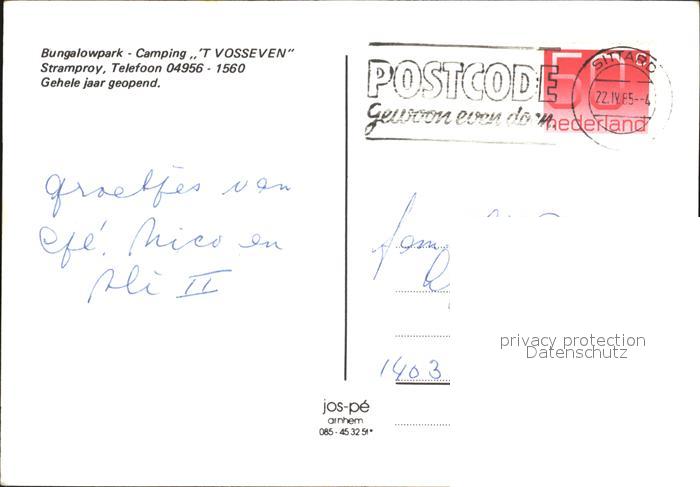 Bungalowpark - Camping ,,'T VOSSEVEN"
Stramproy, Telefoon 04956 - 1560
Gehele jaar geopend.
POSTCODE
Gewoon even doen.
50
nederland
SITTARD
22.IV.85--4
groetjes van
Nico en
Ali II
1403
privacy protection
Datenschutz
jos-pé
arnhem
085 - 45 32 51*